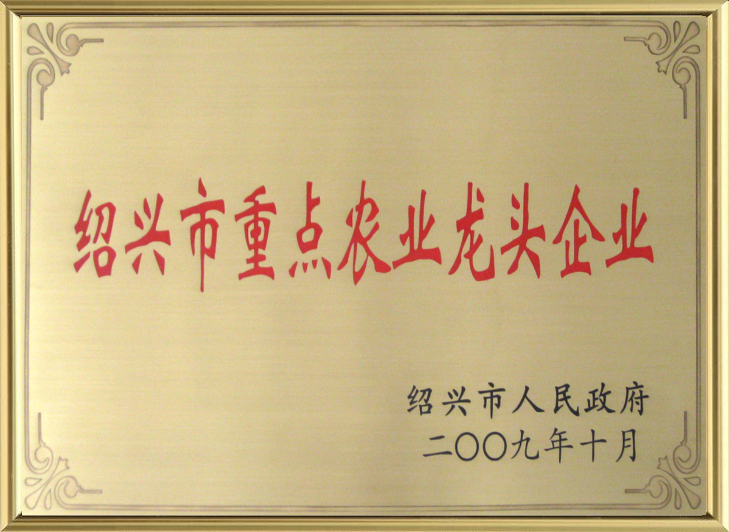 绍兴市重点农业龙头企业
绍兴市人民政府
二〇〇九年十月